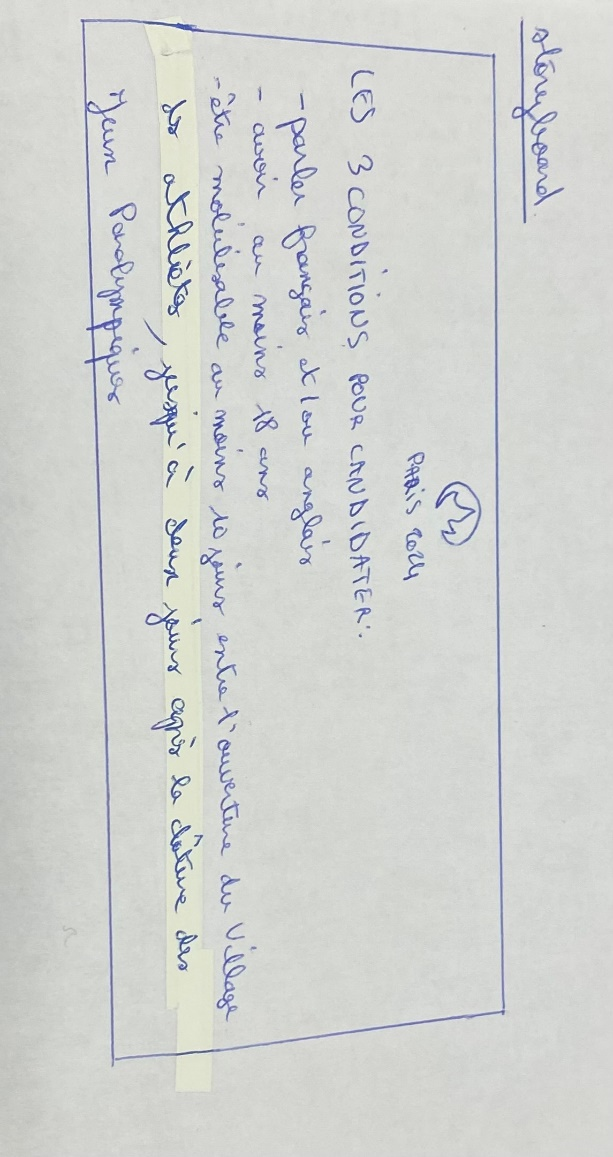 storyboard
PARIS 2024
LES 3 CONDITIONS POUR CANDIDATER:
- parler français et/ou anglais
- avoir au moins 18 ans
- être mobilisable au moins 10 jours entre l'ouverture du Village
des athlètes, jusqu'à deux jours après la clôture des
Jeux Paralympiques